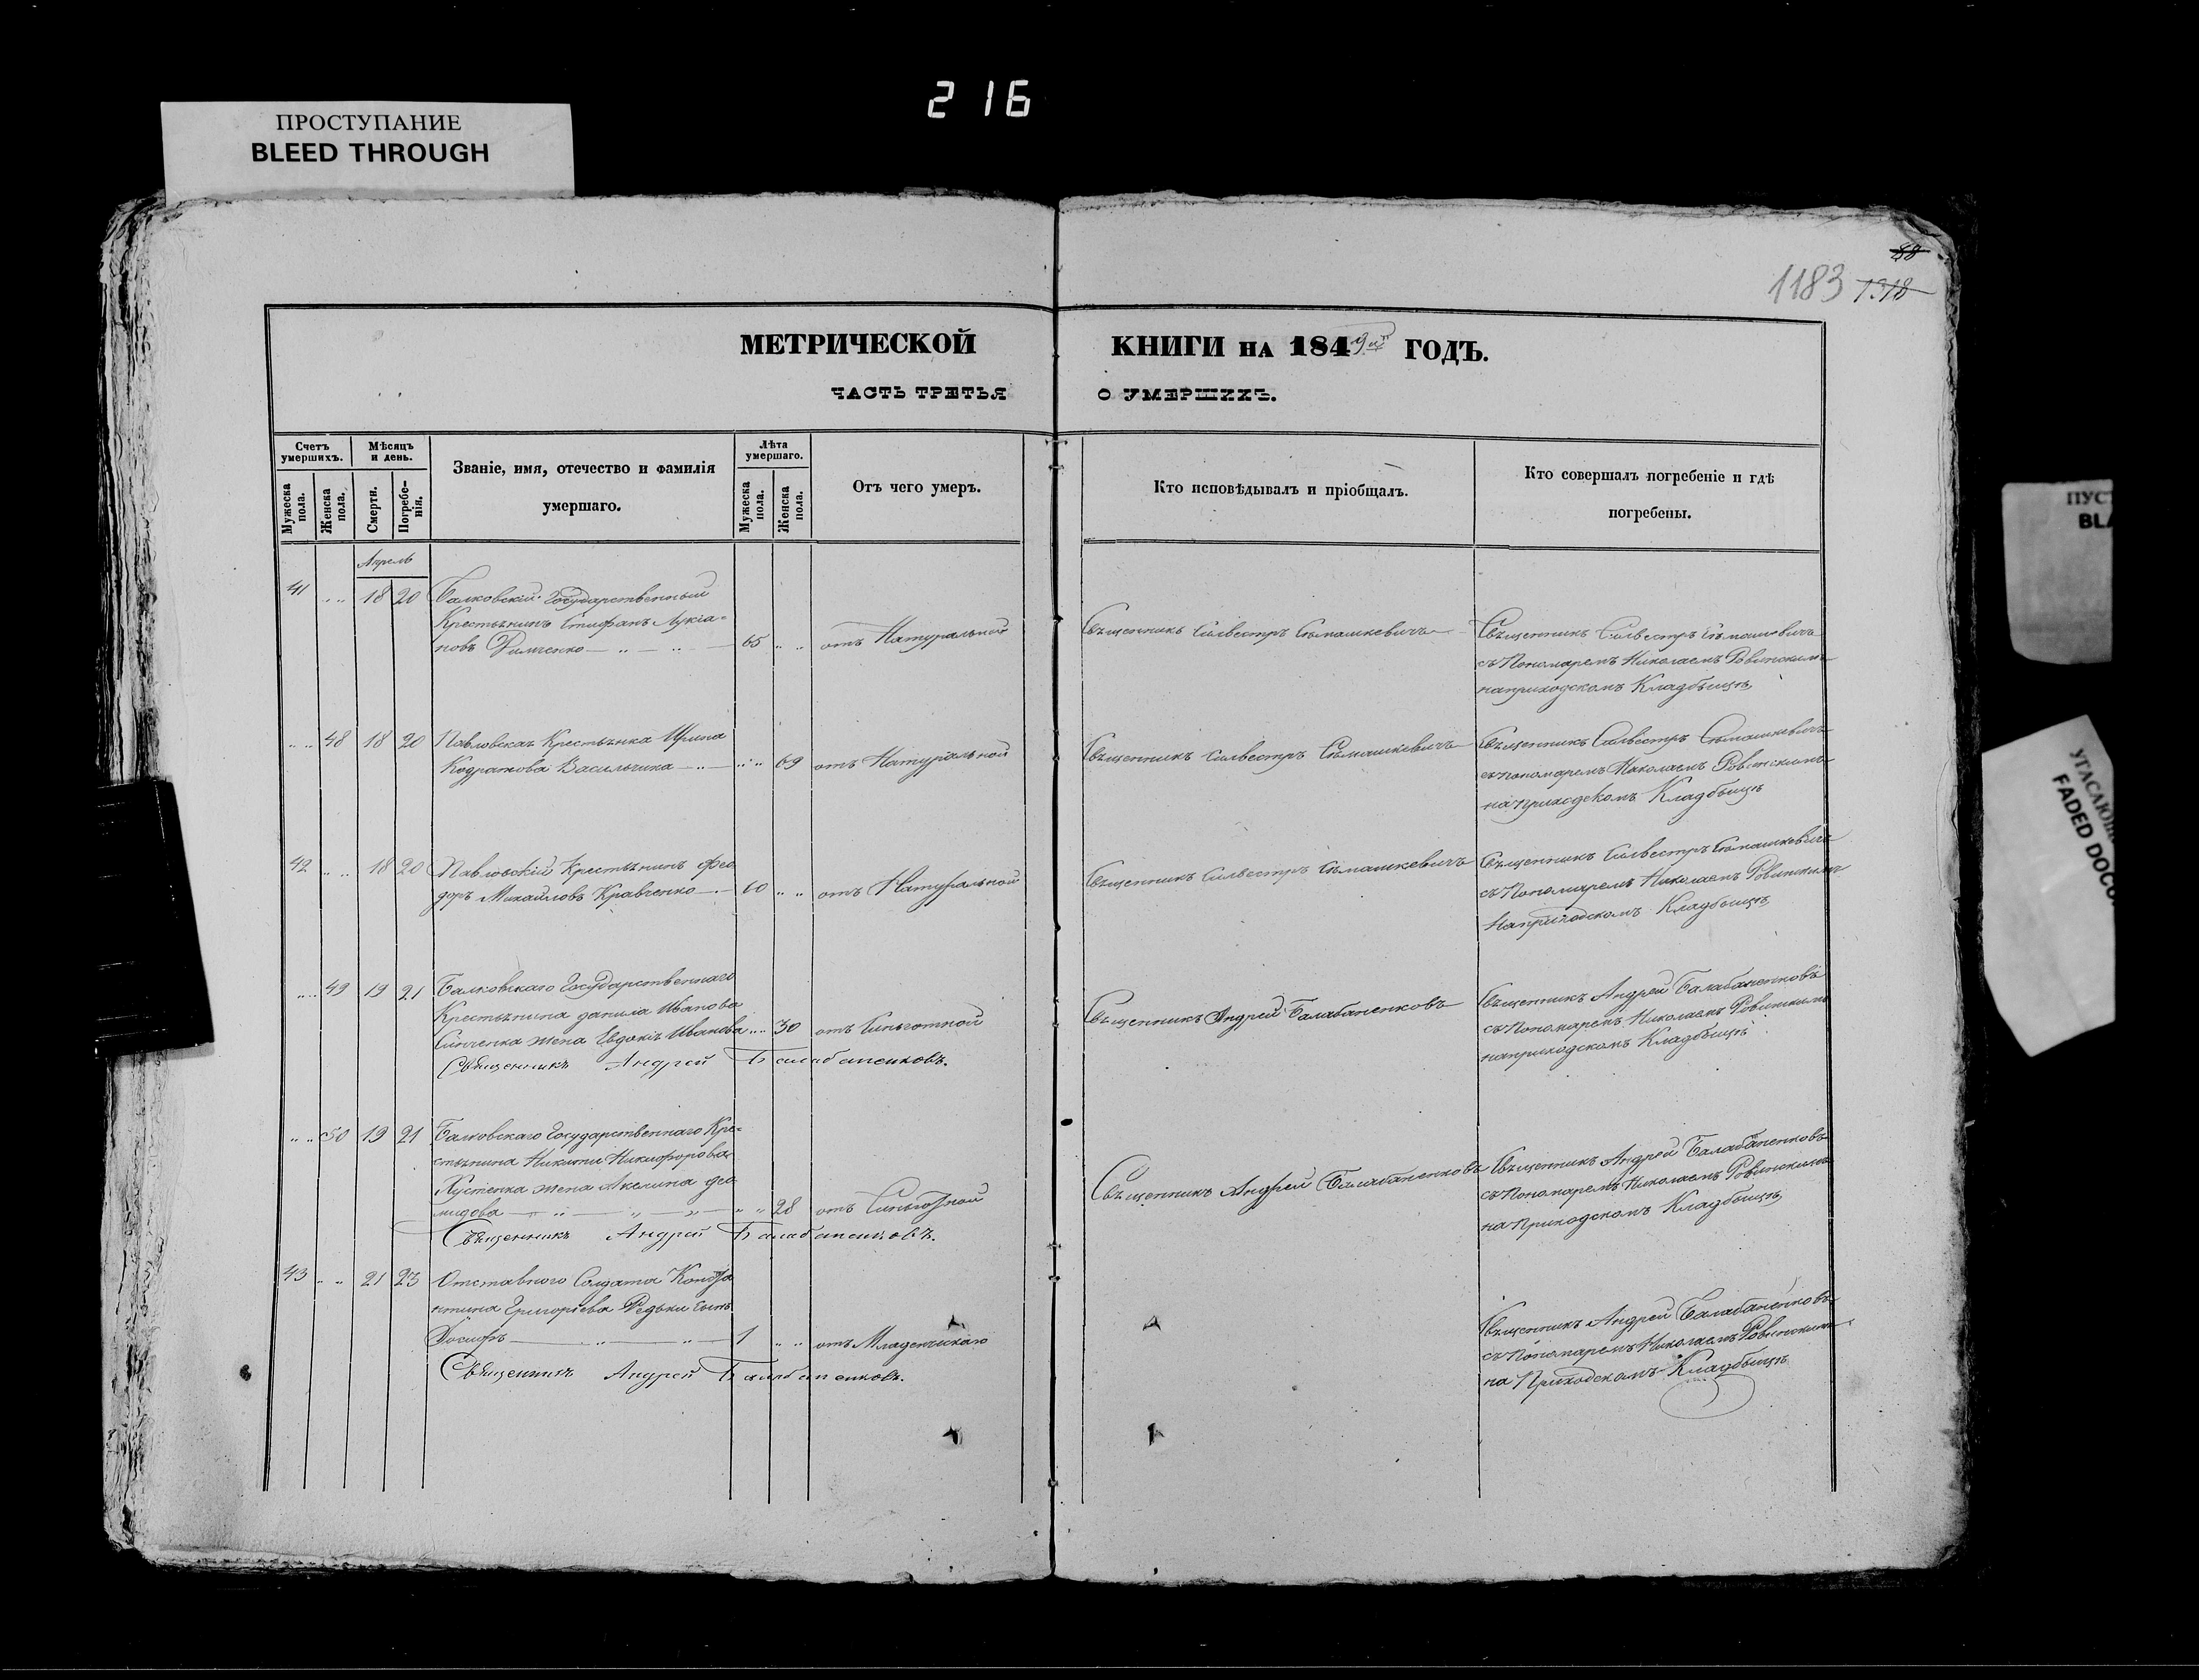 216
ПРОСТУПАНИЕ
BLEED THROUGH
88
1183 1318
МЕТРИЧЕСКОЙ КНИГИ НА 1849й ГОДЪ.
ЧАСТЬ ТРЕТЬЯ О УМЕРШИХЪ.
Счетъ умершихъ.
Мѣсяцъ и день.
Званіе, имя, отечество и фамилія умершаго.
Лѣта умершаго.
Отъ чего умеръ.
Кто исповѣдывалъ и пріобщалъ.
Кто совершалъ погребеніе и гдѣ погребены.
Мужеска пола.
Женска пола.
Смерти.
Погребе-нія.
Мужеска пола.
Женска пола.
Апрель
41 18 20 Балковскій Государственный
Крестьянинъ Стефанъ Лукіа-
новъ 65 отъ Натуральной
Священникъ Силвестръ Сѣмашкевичъ
Священникъ Силвестръ Сѣмашкевичъ
съ Пономаремъ Николаемъ Ровинскимъ
на приходскомъ Кладбищѣ
48 18 20 Павловская Крестьянка Ирина
Кодратова 69 отъ Натуральной
Священникъ Силвестръ Сѣмашкевичъ
Священникъ Силвестръ Сѣмашкевичъ
съ пономаремъ Николаемъ Ровинскимъ
на приходскомъ Кладбищѣ
42 18 20 Павловскій Крестьянинъ Фео
доръ Михайловъ Кравченко 60 отъ Натуральной
Священникъ Силвестръ Сѣмашкевичъ
Священникъ Силвестръ Сѣмашкевичъ
съ Пономаремъ Николаемъ Ровинскимъ
на приходскомъ Кладбищѣ
49 19 21 Балковскаго Государственнаго
Крестьянина Данила Иванова
Синченка жена Евдокія Иванова 30 отъ
Священникъ Андрей Балабаненковъ.
Священникъ Андрей Балабаненковъ
Священникъ Андрей Балабаненковъ
съ Пономаремъ Николаемъ Ровинскимъ
на приходскомъ Кладбищѣ
50 19 21 Балковскаго Государственнаго Кре-
стьянина Никиты Никифорова
жена Акелина Део
мидова 28 отъ
Священникъ Андрей Балабаненковъ.
Священникъ Андрей Балабаненковъ
Священникъ Андрей Балабаненковъ
съ Пономаремъ Николаемъ Ровинскимъ
на Приходскомъ Кладбищѣ
43 21 23 Отставного Солдата Конста
нтина Григорьева Редьки сынъ
Іосифъ 1 отъ Младенческаго
Священникъ Андрей Балабаненковъ.
Священникъ Андрей Балабаненковъ
съ Пономаремъ Николаемъ Ровинскимъ
на Приходскомъ Кладбищѣ
ПУСТ
BLA
FADED DOCU